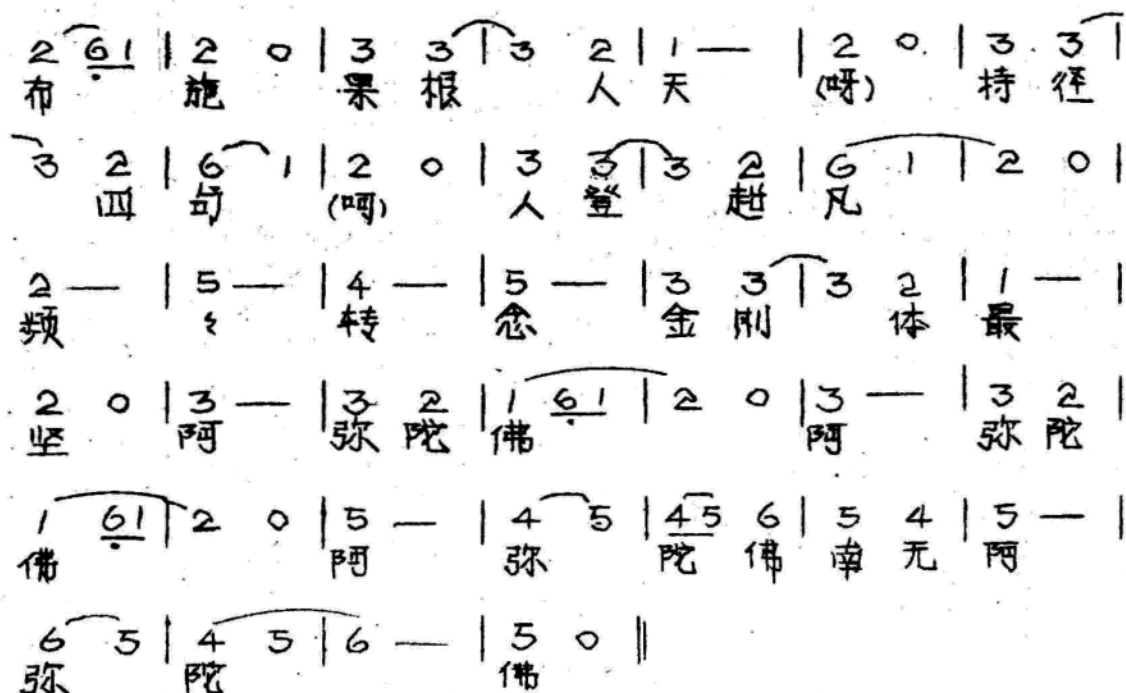 2 61 | 2 0 | 3 3 | 3 2 | 1 — | 2 0 | 3 3 |
布 施 果 根 人 天 (呀) 持 径
3 2 | 6 1 | 2 0 | 3 3 | 3 2 | 6 1 | 2 0 |
四 句 (呵) 人 登 越 凡
2 — | 5 — | 4 — | 5 — | 3 3 | 3 2 | 1 — |
频 〻 转 念 金 刚 体 最
2 0 | 3 — | 3 2 | 1 61 | 2 0 | 3 — | 3 2 |
坚 阿 弥 陀 佛 阿 弥 陀
1 61 | 2 0 | 5 — | 4 5 | 45 6 | 5 4 | 5 — |
佛 阿 弥 陀 佛 南 无 阿
6 5 | 4 5 | 6 — | 5 0 ‖
弥 陀 佛